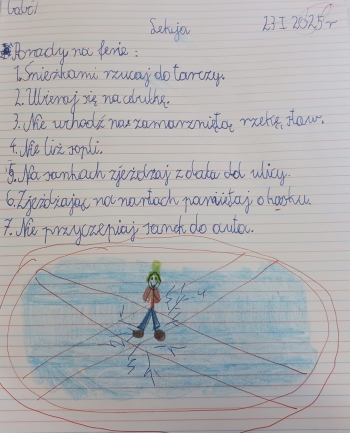 Lekcja 23.I.2025r
Porady na ferie:
1. Śnieżkami rzucaj do tarczy.
2. Ubieraj się na cebulkę.
3. Nie wchodź na zamarzniętą rzekę, staw.
4. Nie liż sopli.
5. Na sankach zjeżdżaj z dala od ulicy.
6. Zjeżdżając na nartach pamiętaj o kasku.
7. Nie przyczepiaj sanek do auta.